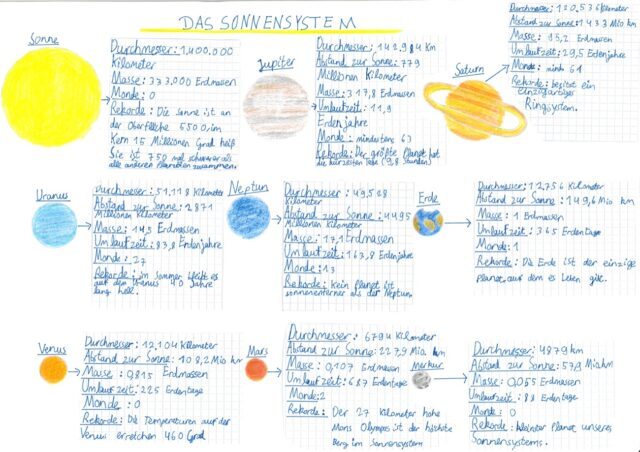 DAS SONNENSYSTEM
Sonne
Durchmesser: 1,400.000
Kilometer
Masse: 333,000 Erdmassen
Monde: 0
Rekorde: Die Sonne ist an
der Oberfläche 5500, im
Kern 15 Millionen Grad heiß
Sie ist 750 mal schwerer als
alle anderen Planeten zusammen.
Jupiter
Durchmesser: 142984 Km
Abstand zur Sonne: 779
Millionen Kilometer
Masse: 317,8 Erdmassen
Umlaufzeit: 11,9
Erdenjahre
Monde: mindestens 63
Rekorde: Der größte Planet hat
die kürzesten (9,8 Stunden)
Saturn
Durchmesser: 120.536 Kilometer
Abstand zur Sonne: 1433 Mio km
Masse: 95,2 Erdmassen
Umlaufzeit: 29,5 Erdenjahre
Monde: mind. 61
Rekorde: besitzt ein
einzigartiges
Ringsystem.
Uranus
Durchmesser: 51,118 Kilometer
Abstand zur Sonne: 2871
Millionen Kilometer
Masse: 14,5 Erdmassen
Umlaufzeit: 83,8 Erdenjahre
Monde: 27
Rekorde: im Sommer bleibt es
auf dem Uranus 40 Jahre
lang hell.
Neptun
Durchmesser: 49,528
Kilometer
Abstand zur Sonne: 4495
Millionen Kilometer
Masse: 17,1 Erdmassen
Umlaufzeit: 163,8 Erdenjahre
Monde: 13
Rekorde: Kein Planet ist
sonnenferner als der Neptun.
Erde
Durchmesser: 12,756 Kilometer
Abstand zur Sonne: 149,6 Mio km
Masse: 1 Erdmassen
Umlaufzeit: 365 Erdentage
Monde: 1
Rekorde: Die Erde ist der einzige
Planet, auf dem es Leben gibt.
Venus
Durchmesser: 12,104 Kilometer
Abstand zur Sonne: 108,2 Mio km
Masse: 0,815 Erdmassen
Umlaufzeit: 225 Erdentage
Monde: 0
Rekorde: Die Temperaturen auf der
Venus erreichen 460 Grad
Mars
Durchmesser: 6794 Kilometer
Abstand zur Sonne: 227,9 Mio. km
Masse: 0,107 Erdmassen
Umlaufzeit: 687 Erdentage
Monde: 2
Rekorde: Der 27 Kilometer hohe
Mons Olympos ist der höchste
Berg im Sonnensystem
Merkur
Durchmesser: 4879 km
Abstand zur Sonne: 57,9 Mio km
Masse: 0,055 Erdmassen
Umlaufzeit: 88 Erdentage
Monde: 0
Rekorde: kleinster Planet unseres
Sonnensystems.